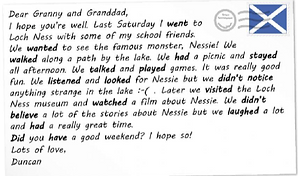 Dear Granny and Granddad,
I hope you're well. Last Saturday I went to
Loch Ness with some of my school friends.
We wanted to see the famous monster, Nessie! We
walked along a path by the lake. We had a picnic and stayed
all afternoon. We talked and played games. It was really good
fun. We listened and looked for Nessie but we didn't notice
anything strange in the lake :-( . Later we visited the Loch
Ness museum and watched a film about Nessie. We didn't
believe a lot of the stories about Nessie but we laughed a lot
and had a really great time.
Did you have a good weekend? I hope so!
Lots of love,
Duncan